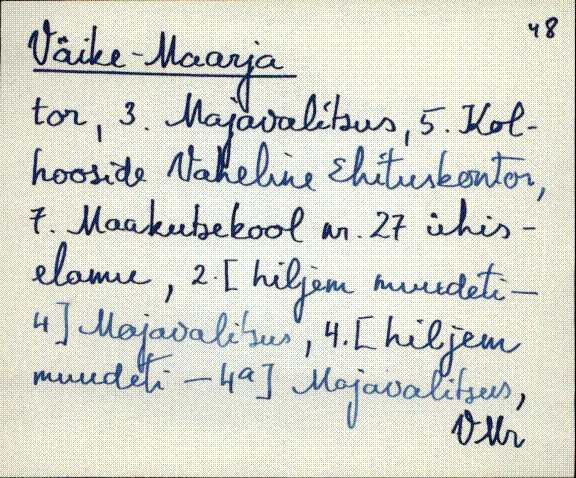 48
Väike-Maarja
tor, 3. Majavalitsus, 5. Kol-
hooside Vaheline Ehituskontor,
7. Maakutsekool nr. 27 ühis-
elamu, 2. [hiljem muudeti -
4] Majavalitsus, 4. [hiljem
muudeti - 4a] Majavalitsus,
VMr